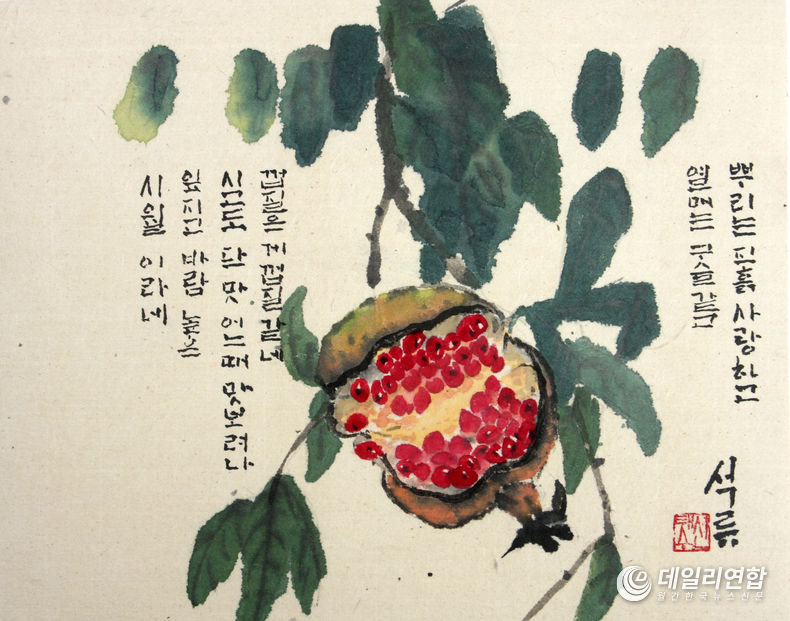 뿌리는 진흙 사랑하고
열매는 구슬같고
껍질은 게껍질같네
시고도 단 맛 어느때 맛보려나
잎지고 바람 높은
시월 이라네
석류
데일리연합
월간한국뉴스신문